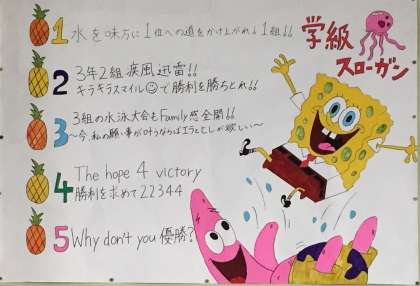 学級
スローガン
1 水を味方に1位への道をかけ上がれ1組!!
2 3年2組 疾風迅雷!!
キラキラスマイル☺で勝利を勝ちとれ!!
3 3組の水泳大会もFamily感全開!!
〜今、私の願い事が叶うならばエラとヒレが欲しい〜
4 The hope 4 victory
勝利を求めて22344
5 Why don't you 優勝?